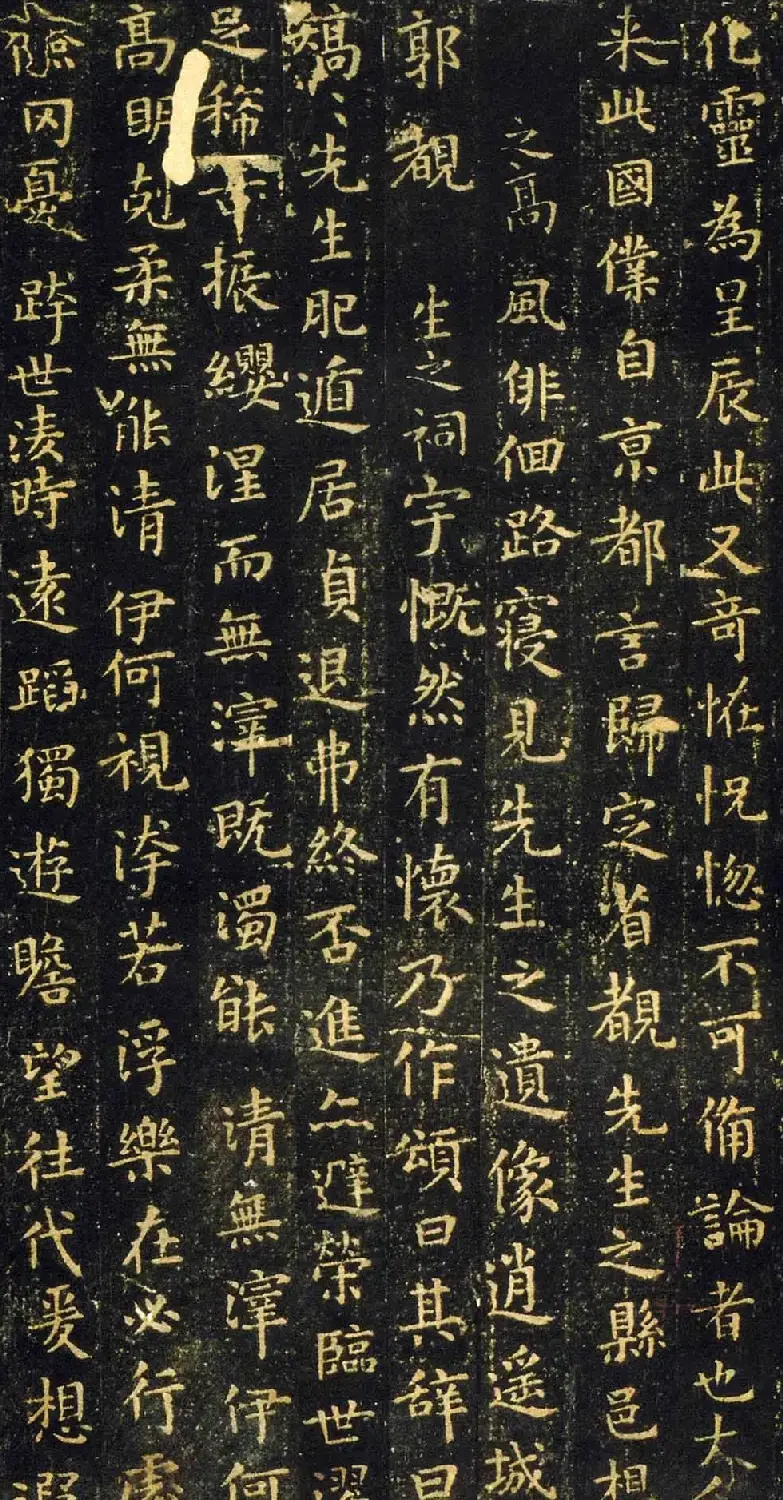 化靈為星辰此又奇怪怳惚不可備論者也大人
来此國僕自京都言歸定省覩先生之縣邑想
之高風俳佪路寢見先生之遺像逍遥城
郭覩生之祠宇慨然有懷乃作頌曰其辞曰
先生肥遁居貞退弗終否進亦避榮臨世濯
足稀古振纓涅而無滓既濁能清無滓伊何
高明剋柔無能清伊何視汙若浮樂在必行處
儉囚憂跨世淩時遠蹈獨遊瞻望往代爰想遐